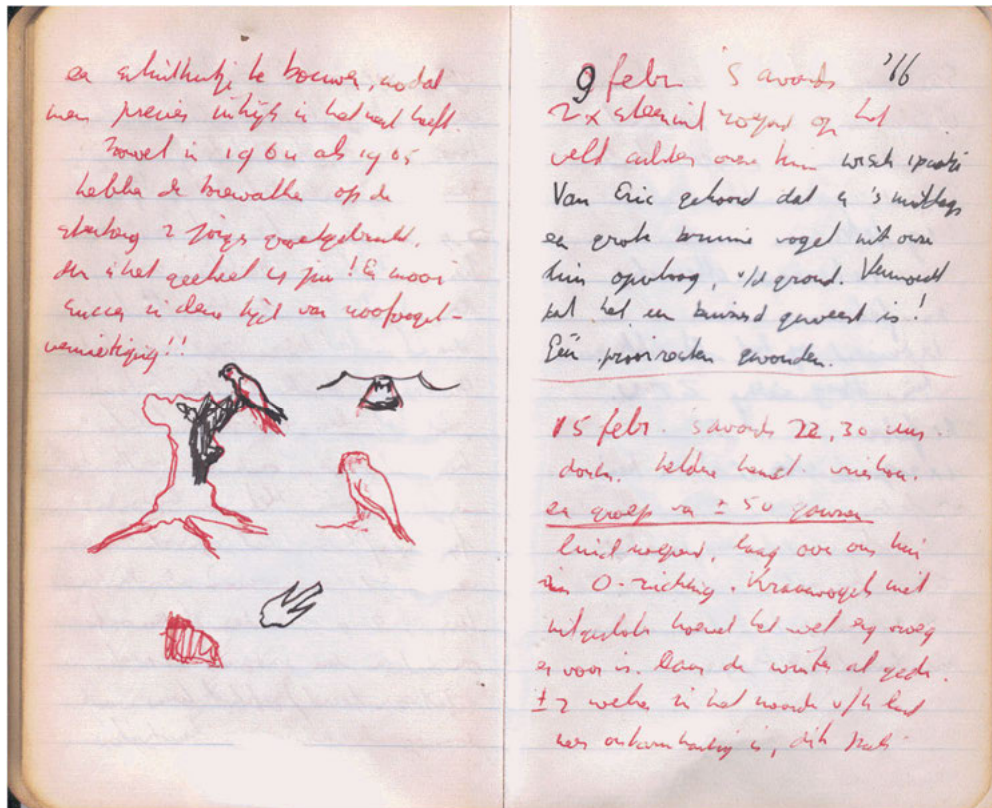 en schuilhutje te bouwen, zodat
men precies inkijk in het nest heeft.
Zowel in 1964 als 1965
hebben de op de
2 jongs grootgebracht.
in het geheel 4 juv! Een mooi
succes in deze tijd van roofvogel-
vernietiging!!
9 febr. 's avonds '66
2x steenuil roepend op het
veld achter onze tuin
Van Eric gehoord dat er 's middags
een grote bruine vogel uit onze
tuin opvloog, v/d grond. Vermoed
dat het een buizerd geweest is!
Eén gevonden.
15 febr. s'avonds 22,30 uur.
donker, heldere hemel.
een groep van ± 50 ganzen
luid roepend, laag over ons huis
in O-richting. Kraanvogels niet
uitgesloten hoewel het wel erg vroeg
er voor is. Daar de winter al
± 2 weken in het noorden v/h land
zeer is, dit